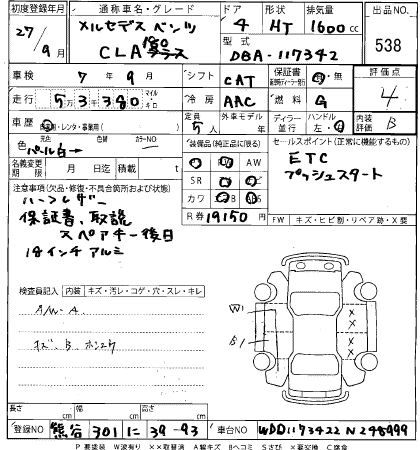 初度登録年月 通称車名・グレード ドア 形状 排気量 出品NO.
27/9月 メルセデス ベンツ CLA180 4 HT 1600cc 538
型式 DBA-117342
車検 7年9月 シフト CAT 保証書 有・無 評価点
走行 53千380 マイル キロ 冷房 AAC 燃料 G 4
車歴 自家用・レンタ・事業用( ) 定員 5人 外車モデル ディーラー 並行 ハンドル 左・右 内装評価 B
色 元色 パール白→ 色替 カラーNO 装備品(純正品に限る) セールスポイント(正常に機能するもの)
AW ETC
名義変更期限 月 日 積載 t SR ナビ プッシュスタート
注意事項(欠品・修復・不具合箇所および状態) カワ ABS
ハーフレザー R券 19150円 FW キズ・ヒビ割・リペア跡・X要
保証書、取説
スペアキー後日
18インチアルミ
検査員記入 内装 キズ・汚レ・コゲ・穴・スレ・キレ W1
A/W-A B1
キズ B
長さ cm 幅 cm 高さ cm
登録NO 熊谷 301 に 39-93 車台NO WDD1173422N248999
P 要塗装 W波有り ××取替済 A線キズ Bヘコミ Sさび ×要交換 C腐食